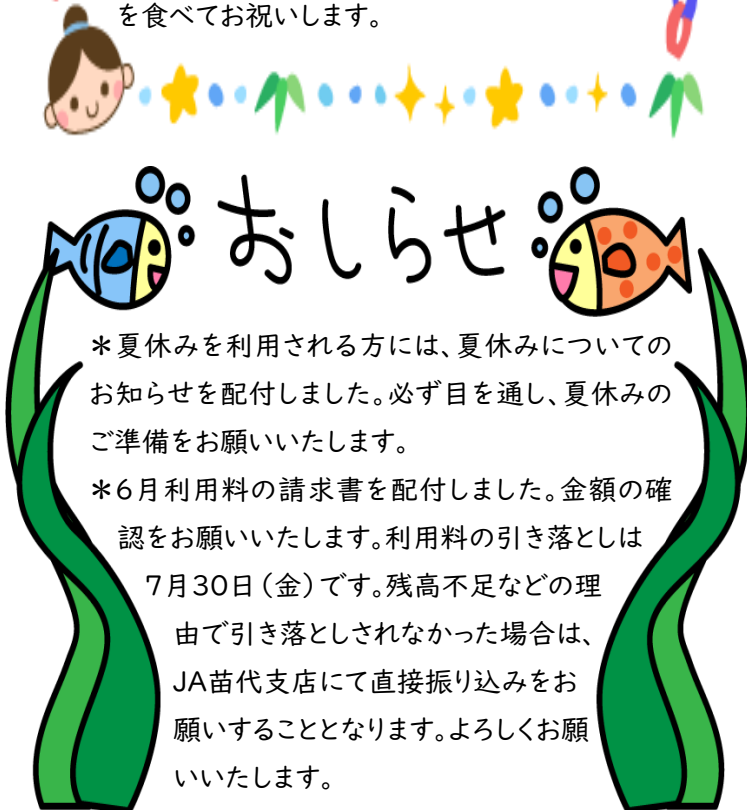 を食べてお祝いします。
おしらせ
＊夏休みを利用される方には、夏休みについての
お知らせを配付しました。必ず目を通し、夏休みの
ご準備をお願いいたします。
＊6月利用料の請求書を配付しました。金額の確
認をお願いいたします。利用料の引き落としは
7月30日（金）です。残高不足などの理
由で引き落としされなかった場合は、
JA苗代支店にて直接振り込みをお
願いすることとなります。よろしくお願
いいたします。